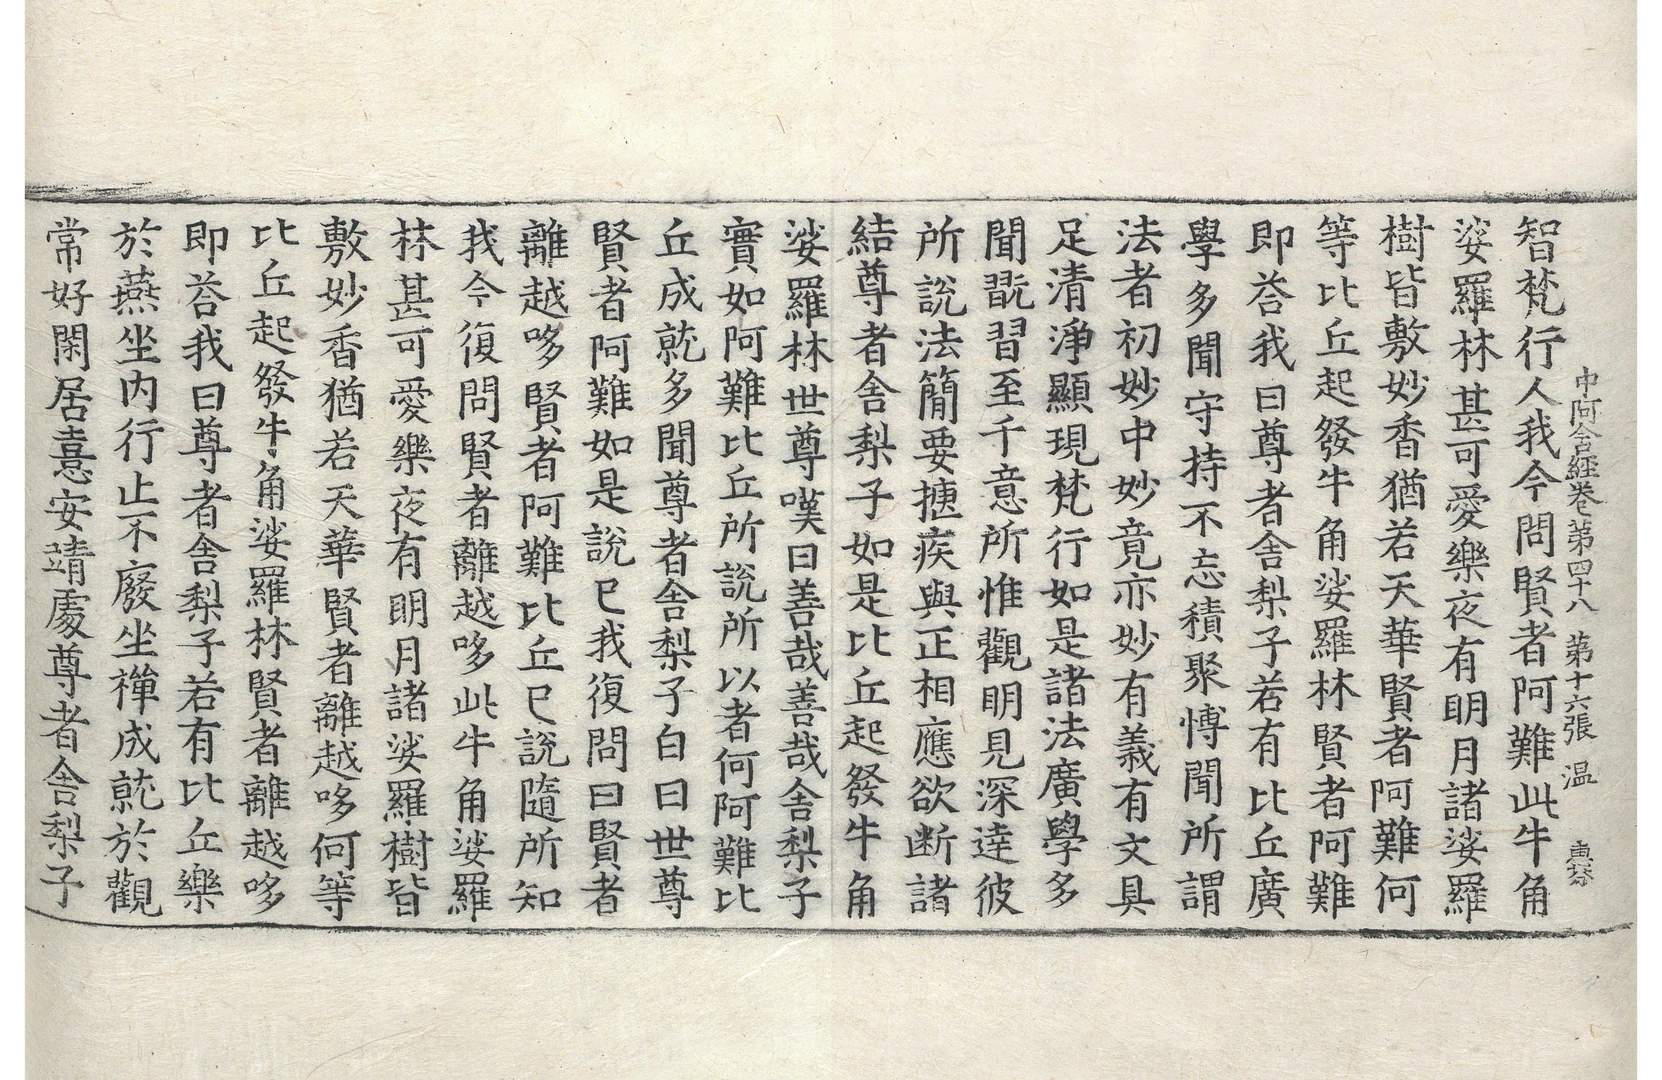 中阿含經卷第四十八 第十六張 温
智梵行人我今問賢者阿難此牛角
娑羅林甚可愛樂夜有明月諸娑羅
樹皆敷妙香猶若天華賢者阿難何
等比丘起發牛角娑羅林賢者阿難
即荅我曰尊者舍梨子若有比丘廣
學多聞守持不忘積聚博聞所謂
法者初妙中妙竟亦妙有義有文具
足清淨顯現梵行如是諸法廣學多
聞翫習至千意所惟觀明見深達彼
所說法簡要揵疾與正相應欲断諸
結尊者舍梨子如是比丘起發牛角
娑羅林世尊嘆曰善哉善哉舍梨子
實如阿難比丘所說所以者何阿難比
丘成就多聞尊者舍梨子白曰世尊
賢者阿難如是說已我復問曰賢者
離越哆賢者阿難比丘已說隨所知
我今復問賢者離越哆此牛角娑羅
林甚可愛樂夜有明月諸娑羅樹皆
敷妙香猶若天華賢者離越哆何等
比丘起發牛角娑羅林賢者離越哆
即荅我曰尊者舍梨子若有比丘樂
於燕坐内行止不廢坐禪成就於觀
常好閑居憙安靖處尊者舍梨子